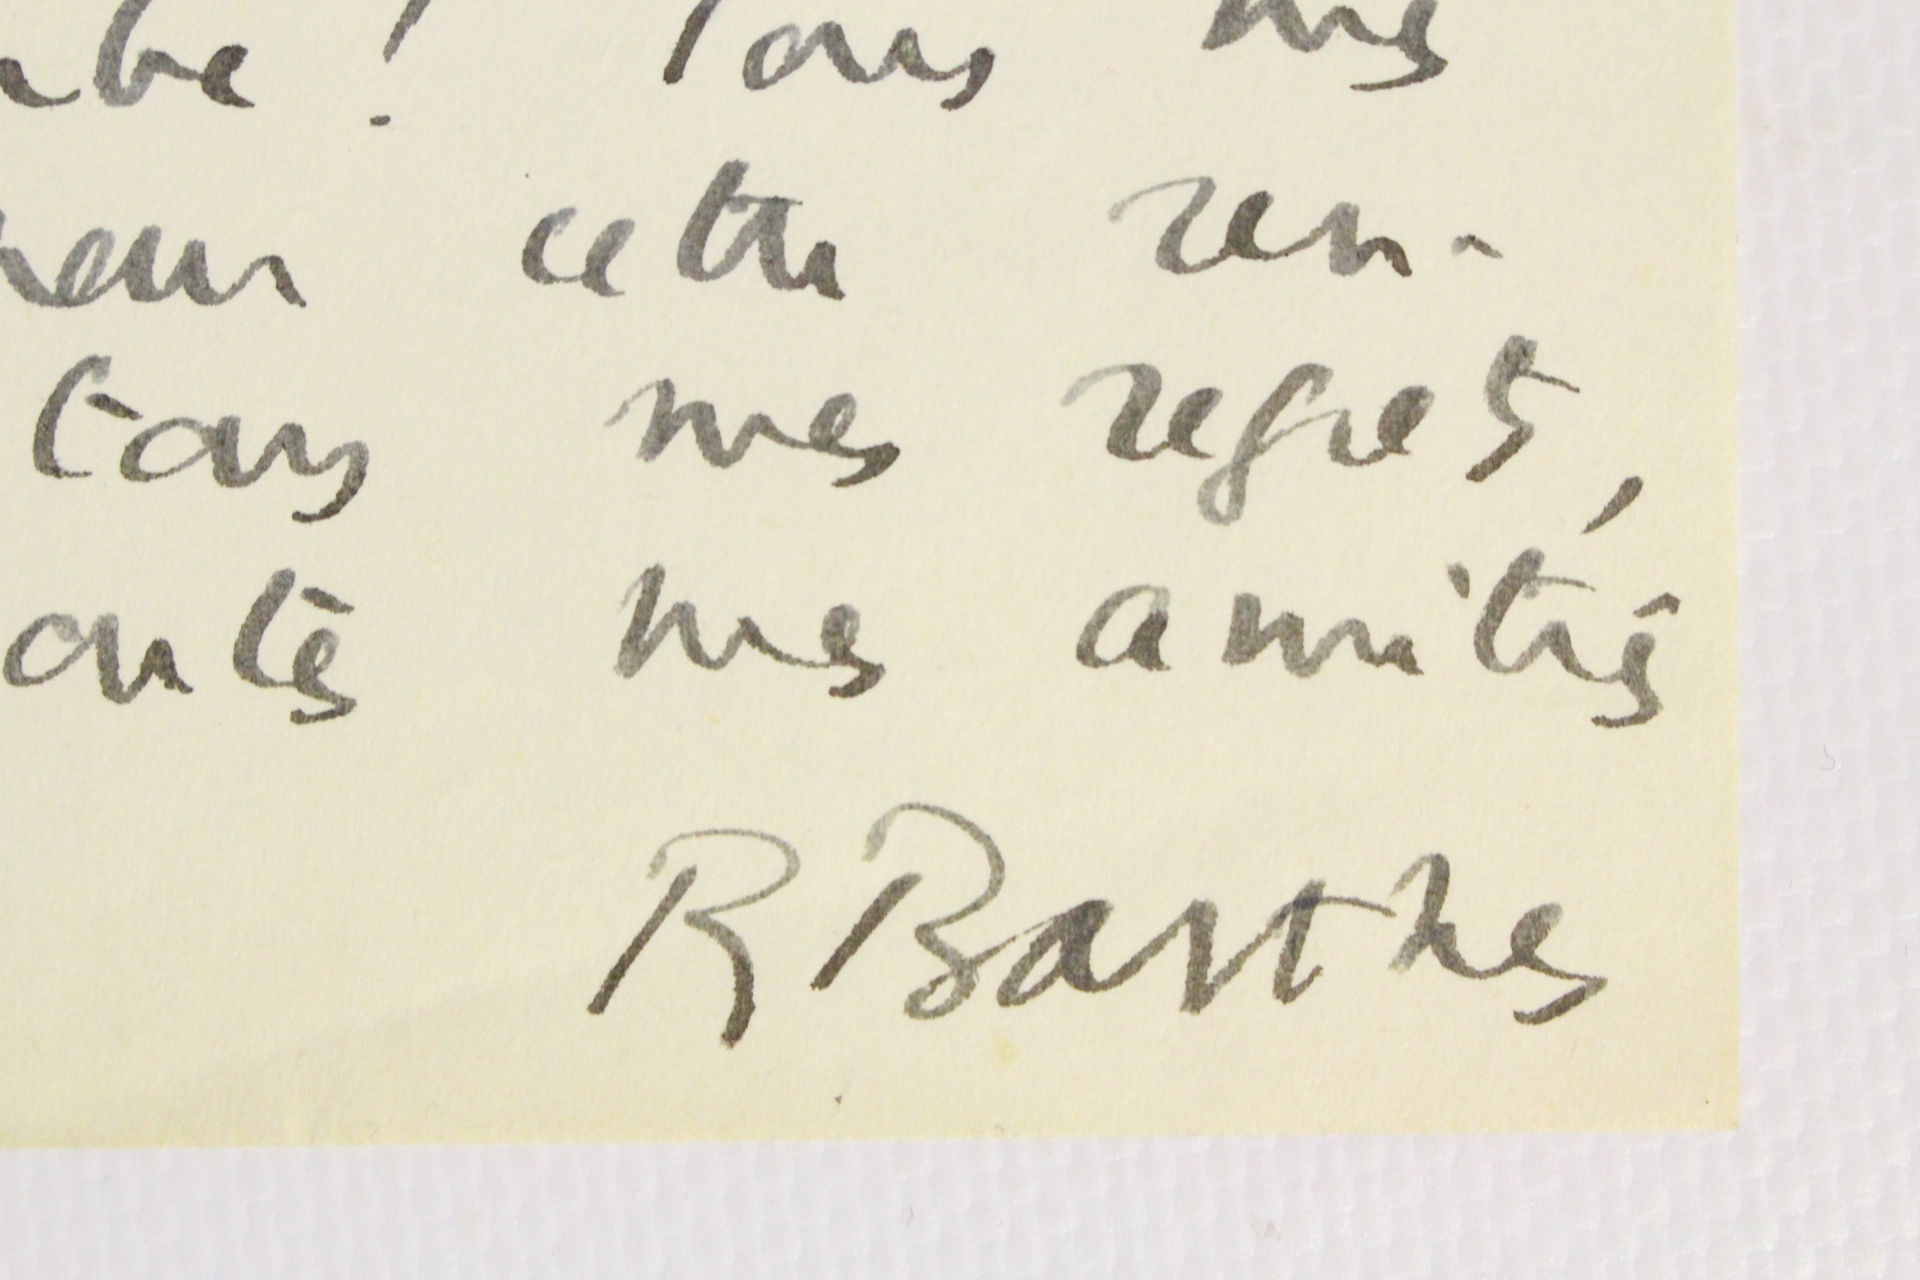 mbe ! Tous mes
neur cette ren-
tous mes regrets,
outes mes amitiés
R Barthes